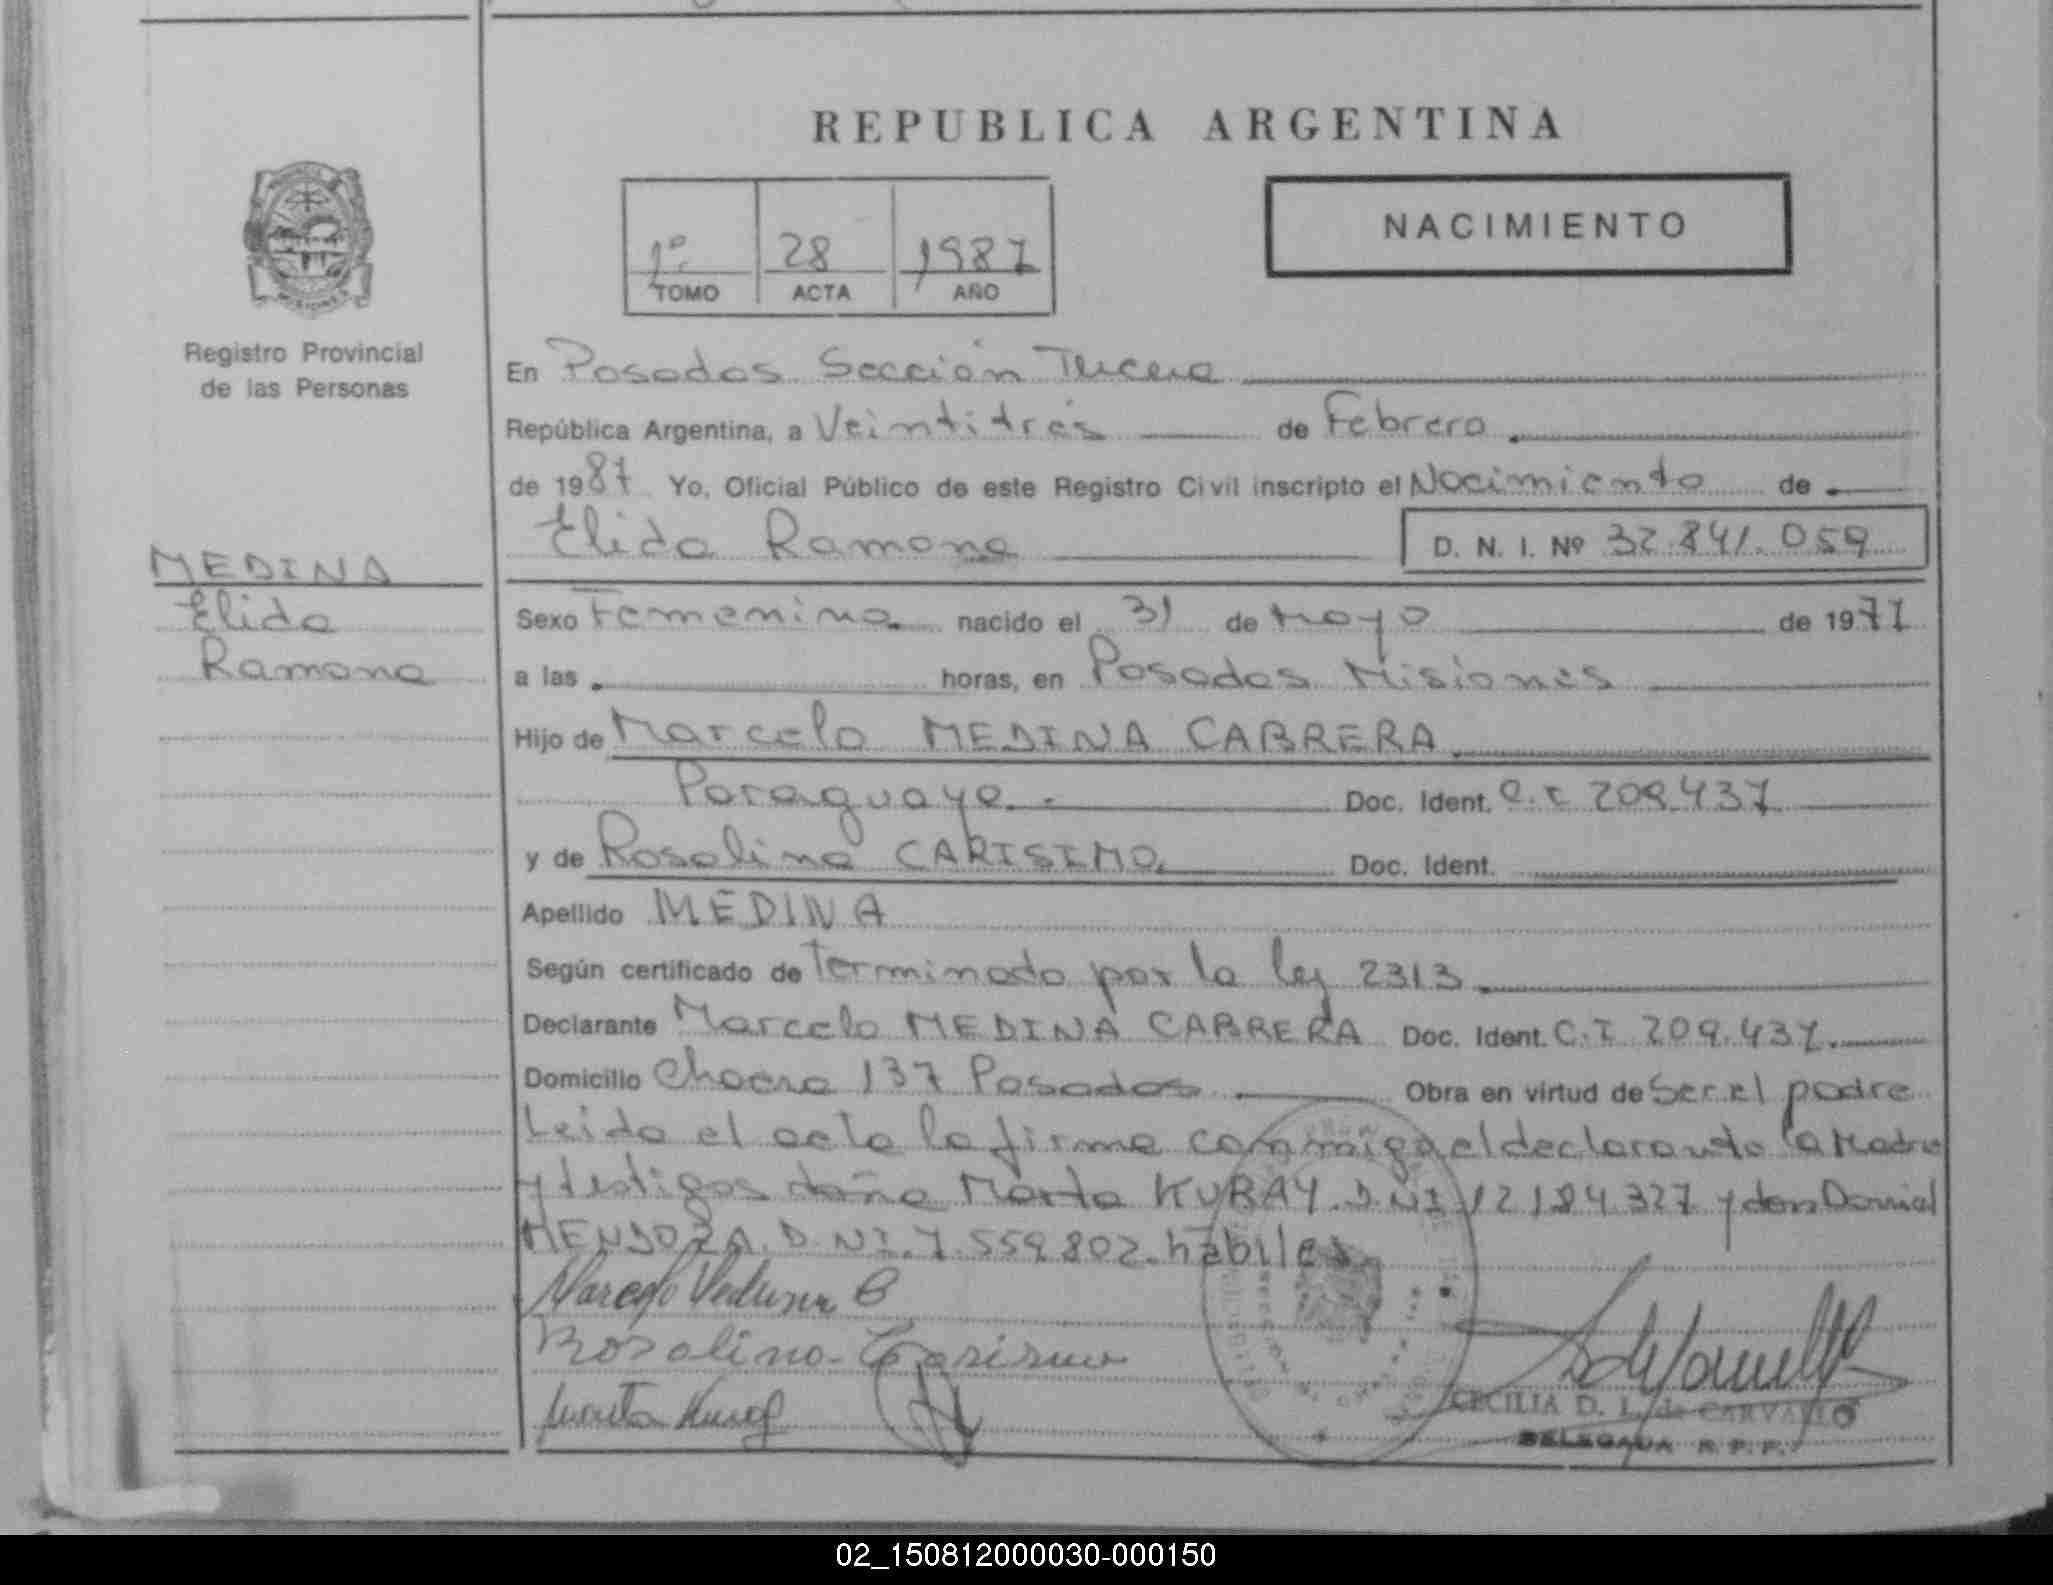 REPUBLICA ARGENTINA
1º 28 1987
TOMO ACTA AÑO
NACIMIENTO
MISIONES
Registro Provincial
de las Personas
MEDINA
Elida
Ramona
En Posadas Sección Tercera
República Argentina, a Veintitrés de Febrero
de 1987 Yo, Oficial Público de este Registro Civil inscripto el Nacimiento de
Elida Ramona D. N. I. Nº 32.841.059
Sexo Femenino nacido el 31 de Mayo de 1971
a las horas, en Posadas Misiones
Hijo de Marcelo MEDINA CABRERA
Paraguayo.- Doc. Ident. C.I 209.437
y de Rosalina CARISIMO. Doc. Ident.
Apellido MEDINA
Según certificado de Terminado por la ley 2313
Declarante Marcelo MEDINA CABRERA Doc. Ident. C.I 209.437.
Domicilio Chacra 137 Posadas Obra en virtud de Ser el padre
Leida el acta la firma conmigo el declarante la Madre
y testigos doña Marta KURAY. D.NI 12184.327 y don Daniel
MENDOZA. D.NI. 7.559.802. habiles
Marcelo Medina C
Rosalino Carisimo
CECILIA D. L. de CARVALLO
DELEGADA R. P. P.
02_150812000030-000150